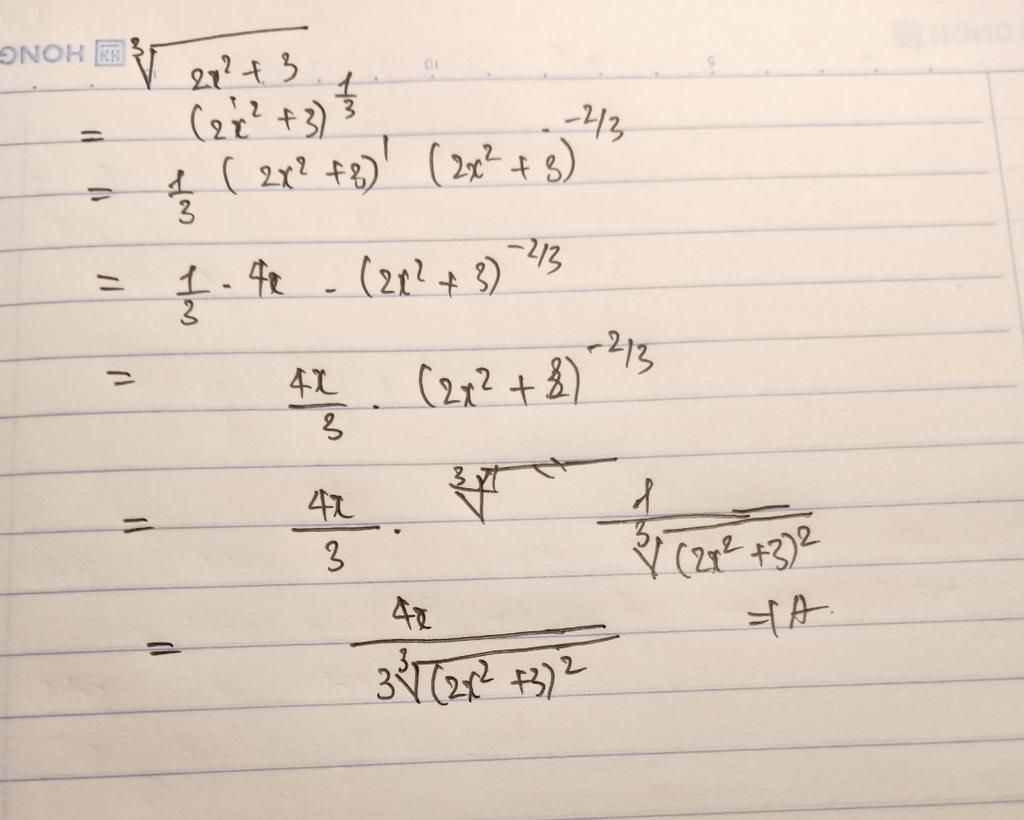 HONG
10
9
∛(2x² + 3)
= (2x² + 3)^{1/3}
= 1/3 (2x² + 3)' (2x² + 3)^{-2/3}
= 1/3 . 4x . (2x² + 3)^{-2/3}
= 4x/3 . (2x² + 3)^{-2/3}
= 4x/3 . 1/∛((2x² + 3)²)
= 4x/(3∛((2x² + 3)²)) ⇒ A.